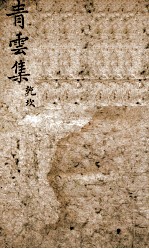 青雲集
乾坎